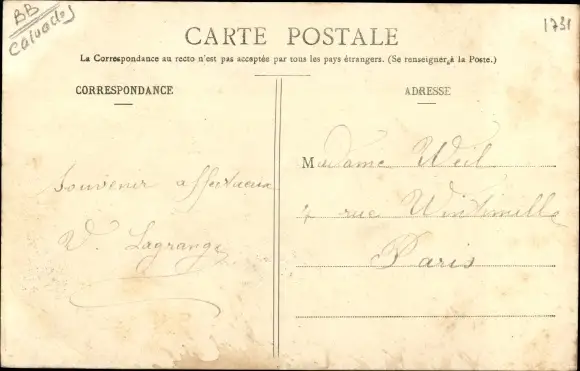 BB
Calvados
1731
CARTE POSTALE
La Correspondance au recto n'est pas acceptée par tous les pays étrangers. (Se renseigner à la Poste.)
CORRESPONDANCE
ADRESSE
Souvenir affectueux
V. Lagrange
Madame Weil
7 rue Wintimille
Paris